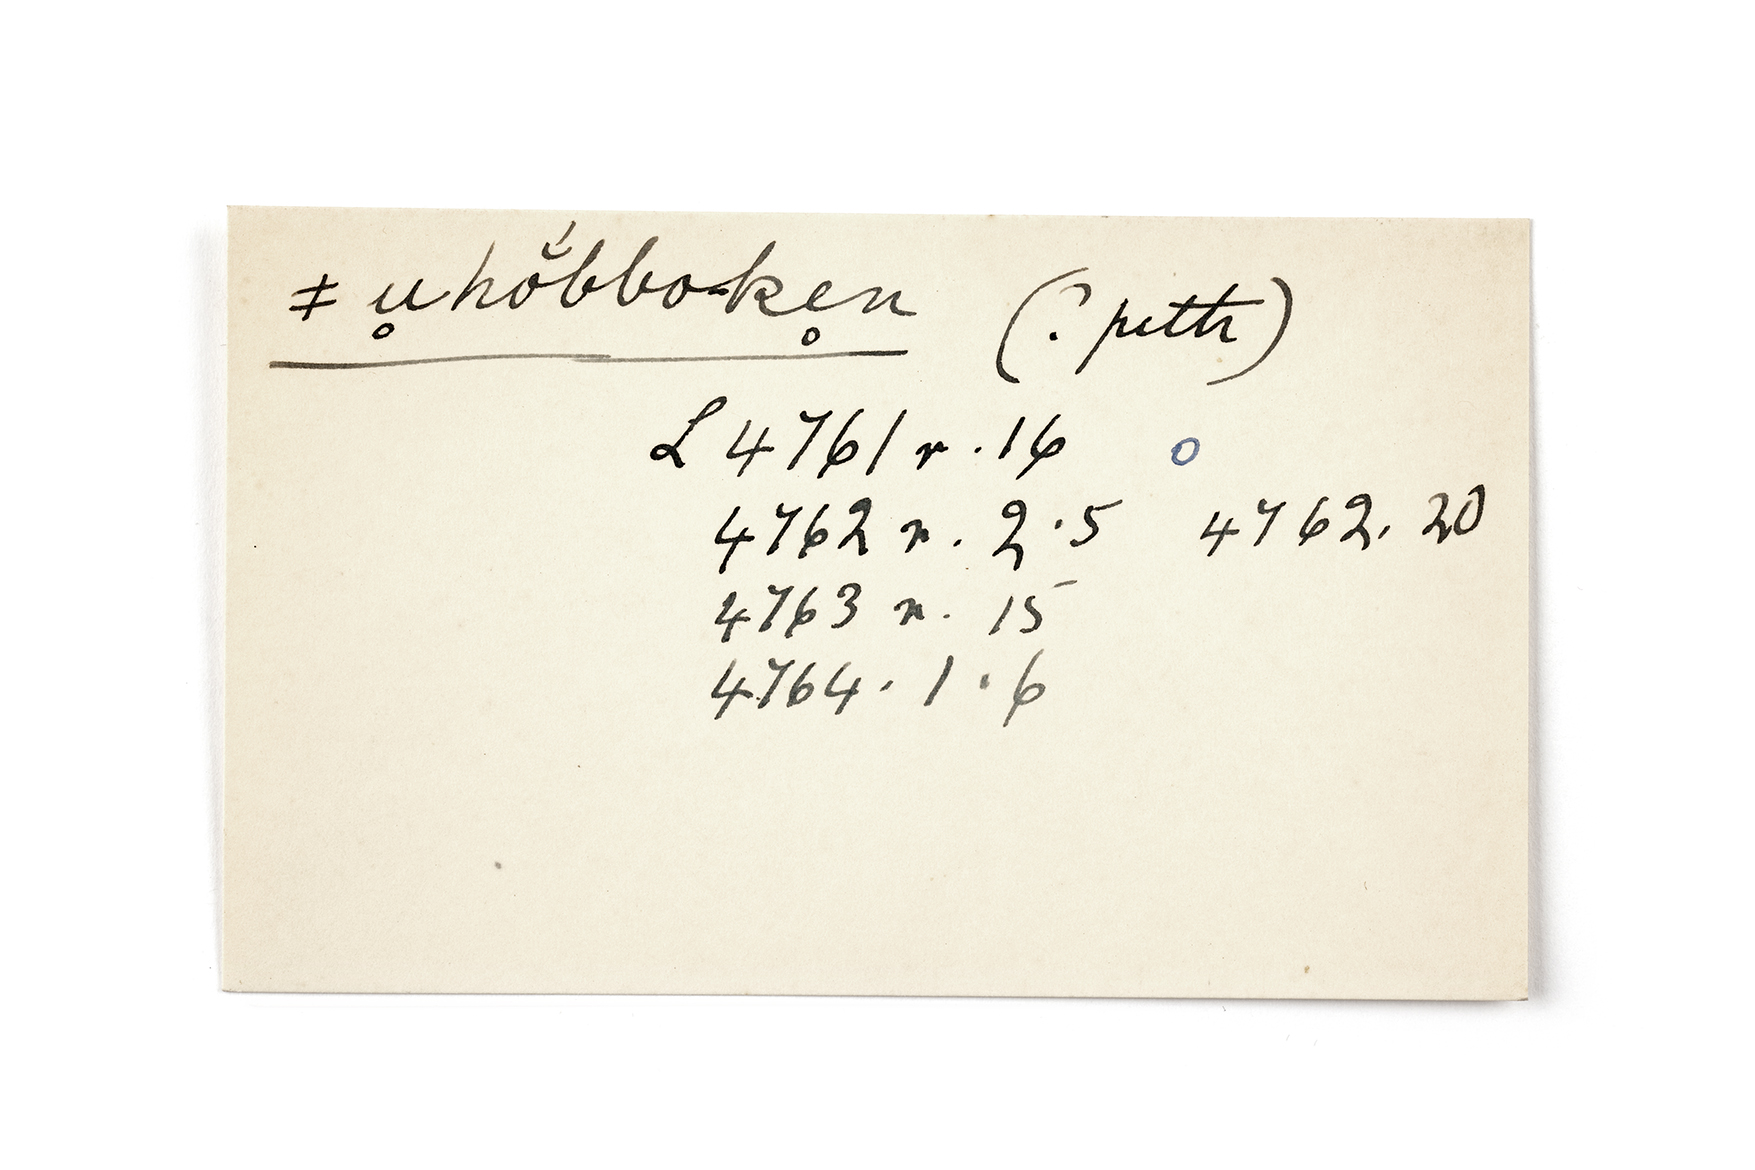 ǂu̥hŏ́bbo-ke̥n (? pith)
L 4761 r. 16 o
4762 r. 2.5 4762. 20
4763 r. 15
4764. 1.6